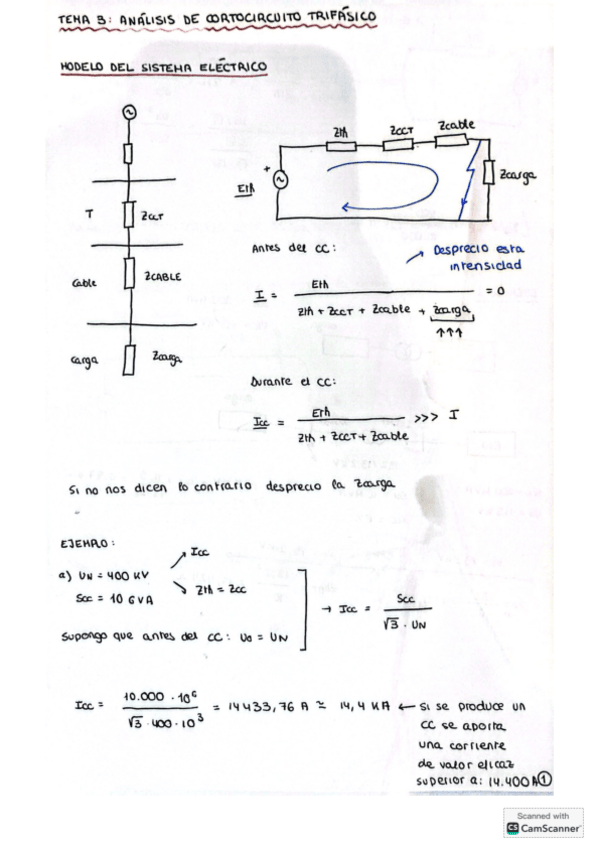 TEMA 3: ANÁLISIS DE CORTOCIRCUITO TRIFÁSICO
MODELO DEL SISTEMA ELÉCTRICO
Zth ZCCT Zcable
Zcarga
+
Eth
T ZCCT
Cable ZCABLE
Carga Zcarga
Antes del CC:
Desprecio esta
intensidad
I = Eth / Zth + ZCCT + Zcable + Zcarga = 0
↑↑↑
Durante el CC:
Icc = Eth / Zth + ZCCT + Zcable >>> I
Si no nos dicen lo contrario desprecio la Zcarga
EJEMPLO:
Icc
a) UN = 400 KV
Scc = 10 GVA
Zth = Zcc
→ Icc = Scc / √3 · UN
Supongo que antes del CC: U0 = UN
Icc = 10.000 · 10^6 / √3 · 400 · 10^3 = 14433,76 A ≃ 14,4 KA ← Si se produce un
CC se aporta
una corriente
de valor eficaz
superior a: 14.400 A ①
Scanned with
CS CamScanner